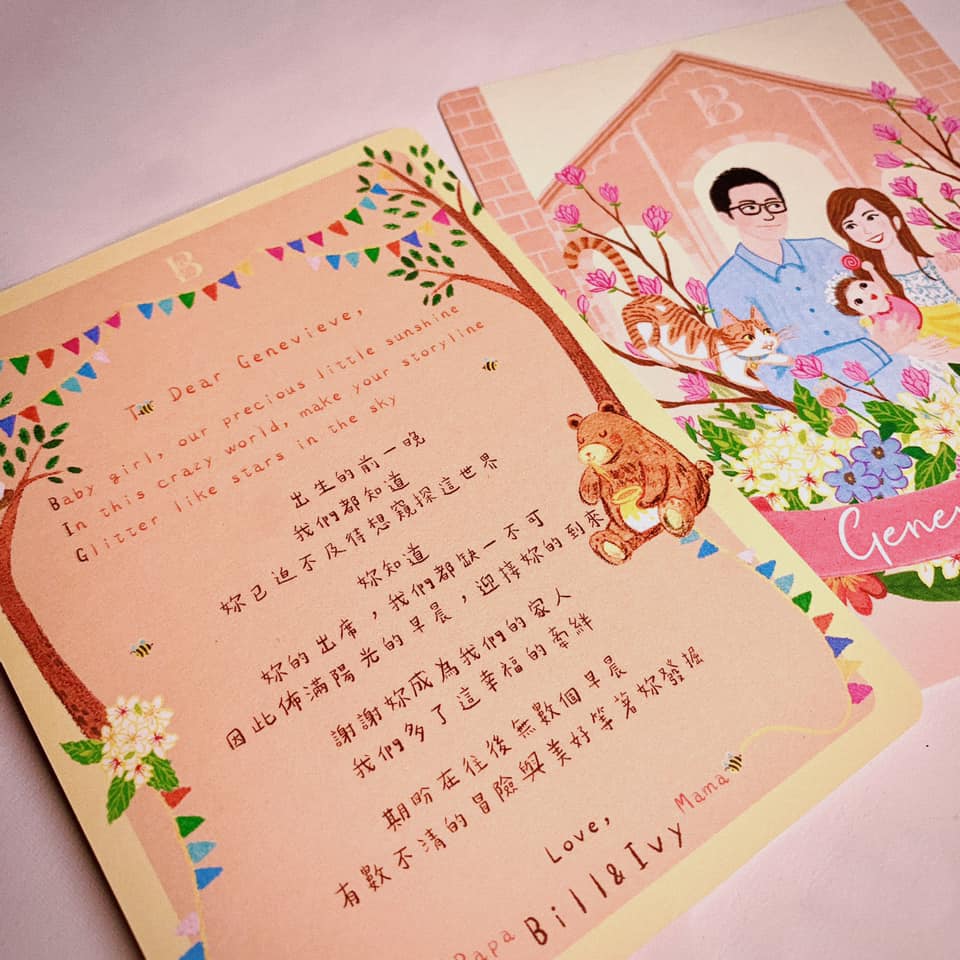 B
To Dear Genevieve,
Baby girl, our precious little sunshine
In this crazy world, make your storyline
Glitter like stars in the sky
出生的前一晚
我們都知道
妳已迫不及待想窺探這世界
妳知道
妳的出席，我們都缺一不可
因此佈滿陽光的早晨，迎接妳的到來
謝謝妳成為我們的家人
我們多了這幸福的牽絆
期盼在往後無數個早晨
有數不清的冒險與美好等著妳發掘
Love,
Papa Bill&Ivy Mama
B